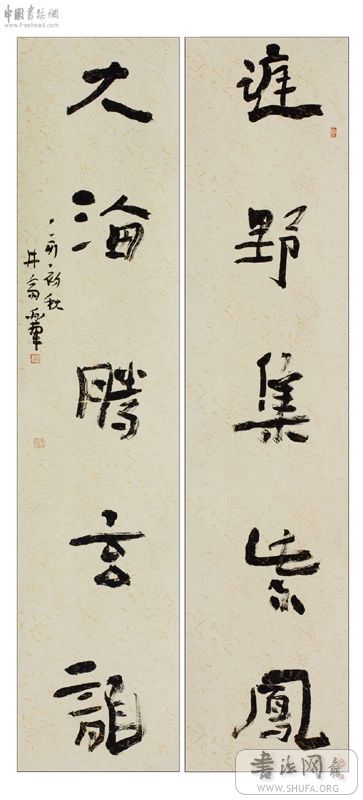 中國書法網
www.freehead.com
野集紫鳳
大海騰玄龍
丁亥初秋
井翁
书法网
WWW.SHUFA.ORG